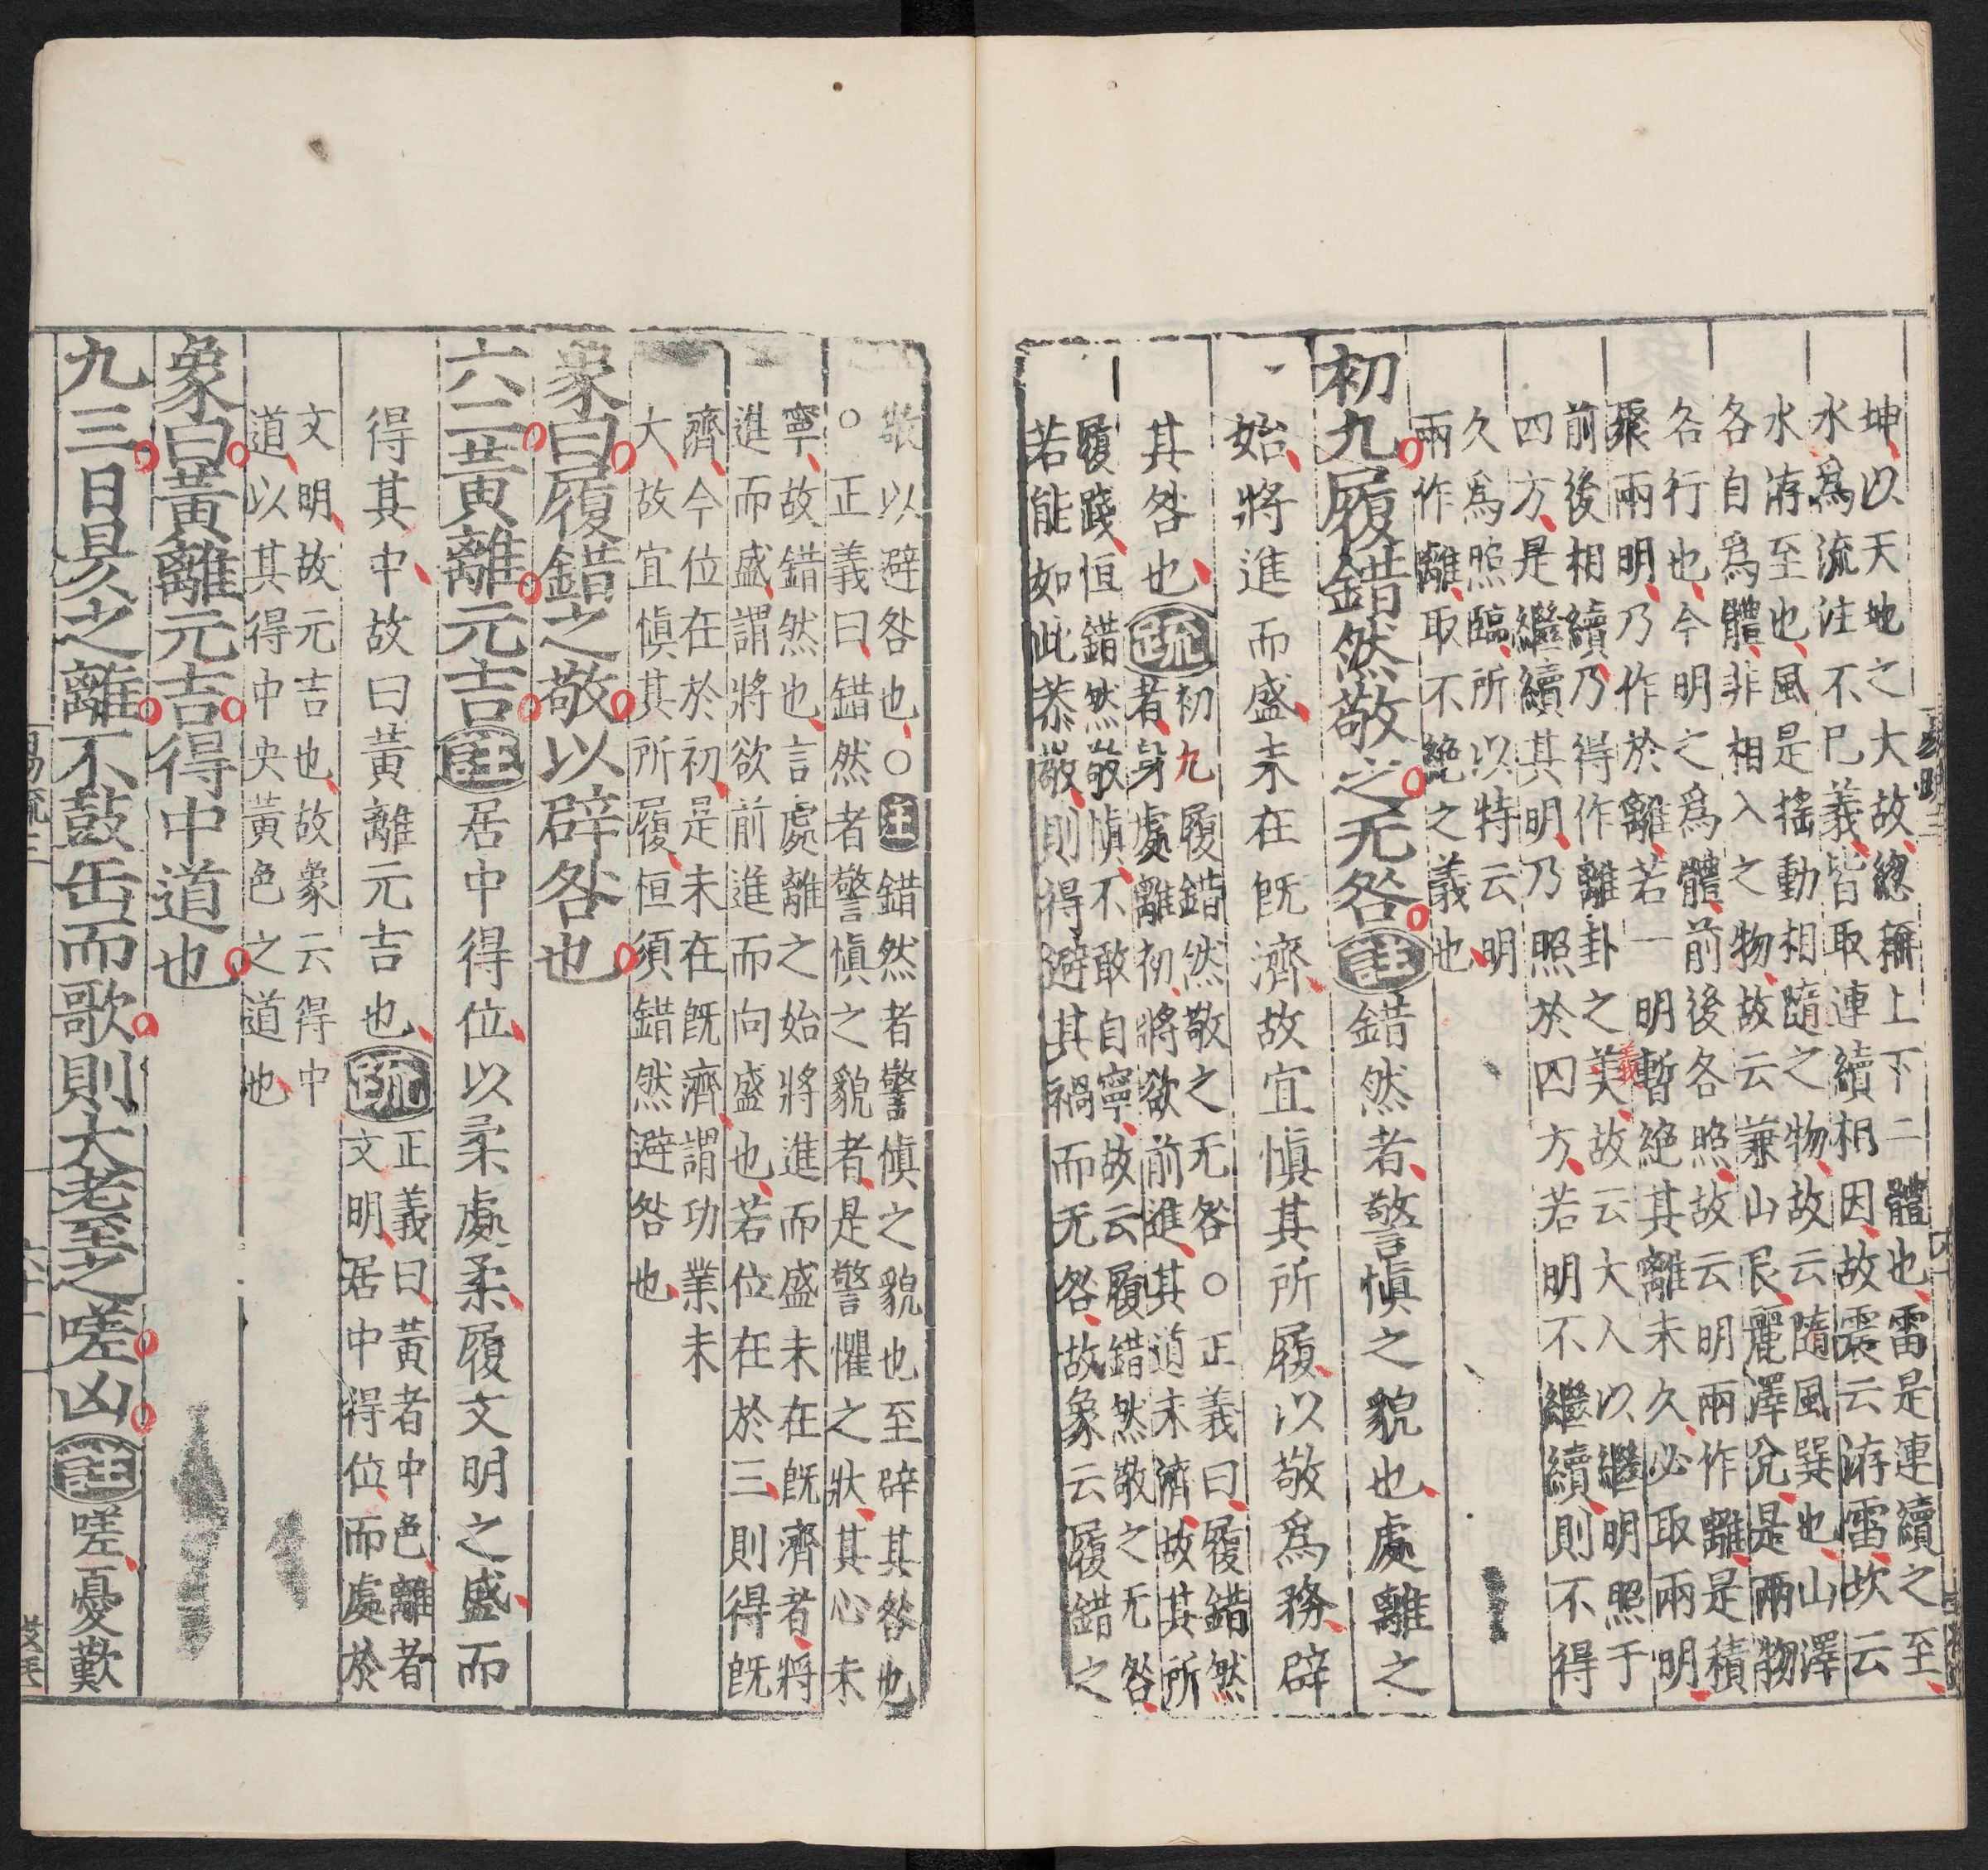 坤以天地之大故總稱上下二體也雷是連續之至
水爲流注不已義皆取連續相因故震云洊雷坎云
水洊至也風是搖動相隨之物故云隨風巽也山澤
各自爲體非相入之物故云兼山艮麗澤兌是兩物
各行也今明之爲體前後各照故云明兩作離是積
聚兩明乃作於離若一明暫絕其離未久必取兩明
前後相續乃得作離卦之美故云大人以繼明照于
義
四方是繼續其明乃照於四方若明不繼續則不得
久爲照臨所以特云明
兩作離取不絕之義也
初九履錯然敬之无咎註錯然者警愼之貌也處離之
始將進而盛未在旣濟故宜愼其所履以敬爲務辟
其咎也疏
初九履錯然敬之无咎○正義曰履錯然
者身處離初將欲前進其道未濟故其所
履踐恒錯然敬愼不敢自寧故云履錯然敬之无咎
若能如此恭敬則得避其禍而无咎故象云履錯之
敬以避咎也○註錯然者警愼之貌也至辟其咎也
○正義曰錯然者警愼之貌者是警懼之狀其心未
寧故錯然也言處離之始將進而盛未在旣濟者將
進而盛謂將欲前進而向盛也若位在於三則得旣
濟今位在於初是未在旣濟謂功業未
大故宜愼其所履恒須錯然避咎也
象曰履錯之敬以辟咎也
六二黃離元吉註居中得位以柔處柔履文明之盛而
得其中故曰黃離元吉也疏
正義曰黃者中色離者
文明居中得位而處於
文明故元吉也故象云得中
道以其得中央黃色之道也
象曰黃離元吉得中道也
九三日昃之離不鼓缶而歌則大耋之嗟凶註嗟憂歎